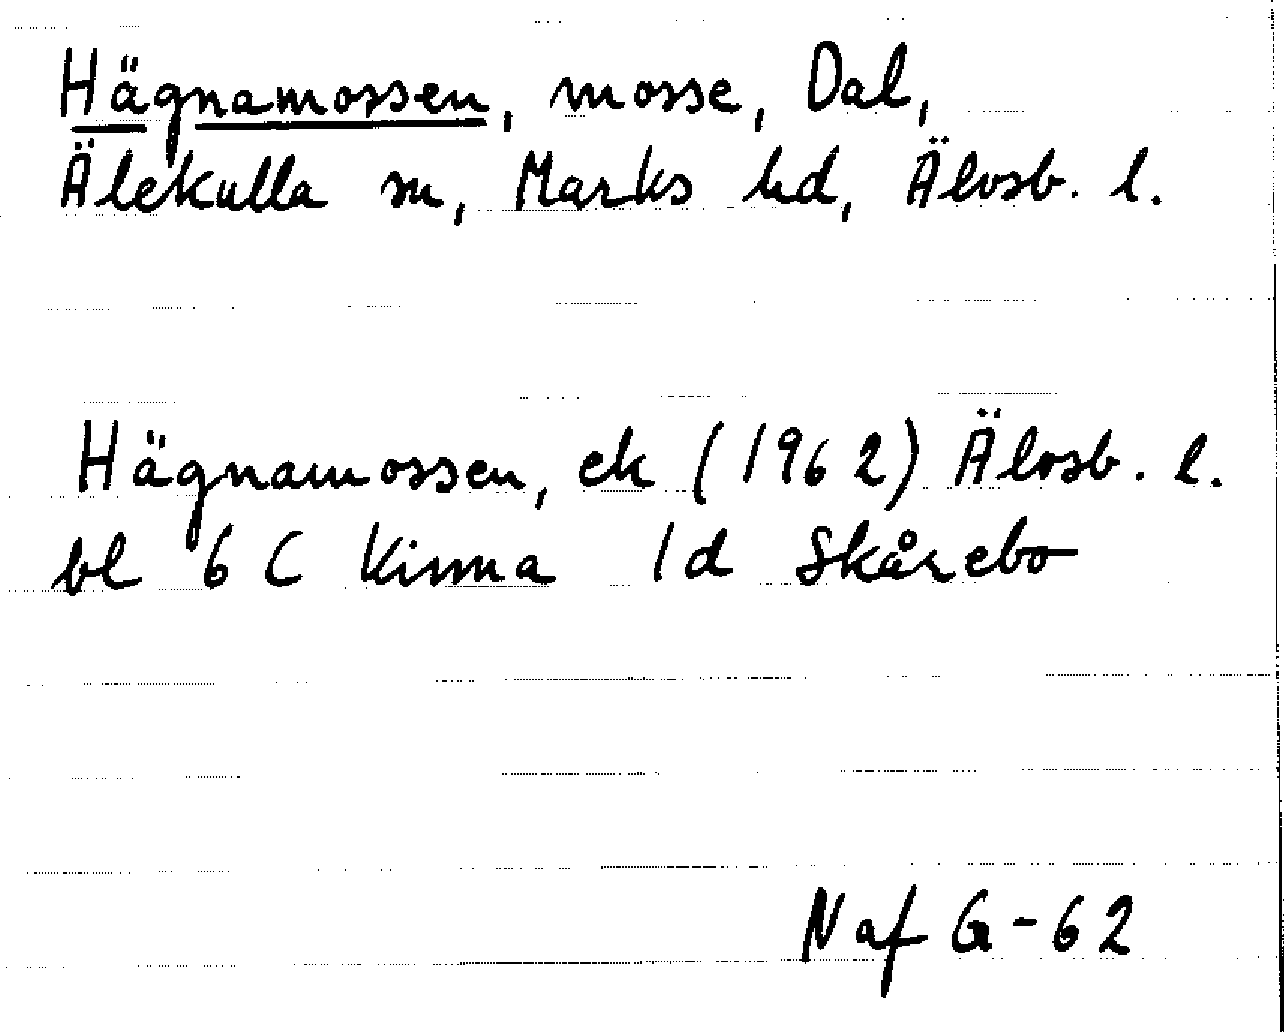 Hägnamossen, mosse, Dal,
Älekulla sn, Marks hd, Älvsb. l.
Hägnamossen, ek (1962) Älvsb. l.
bl 6 C Kinna 1d Skårebo
Naf G-62